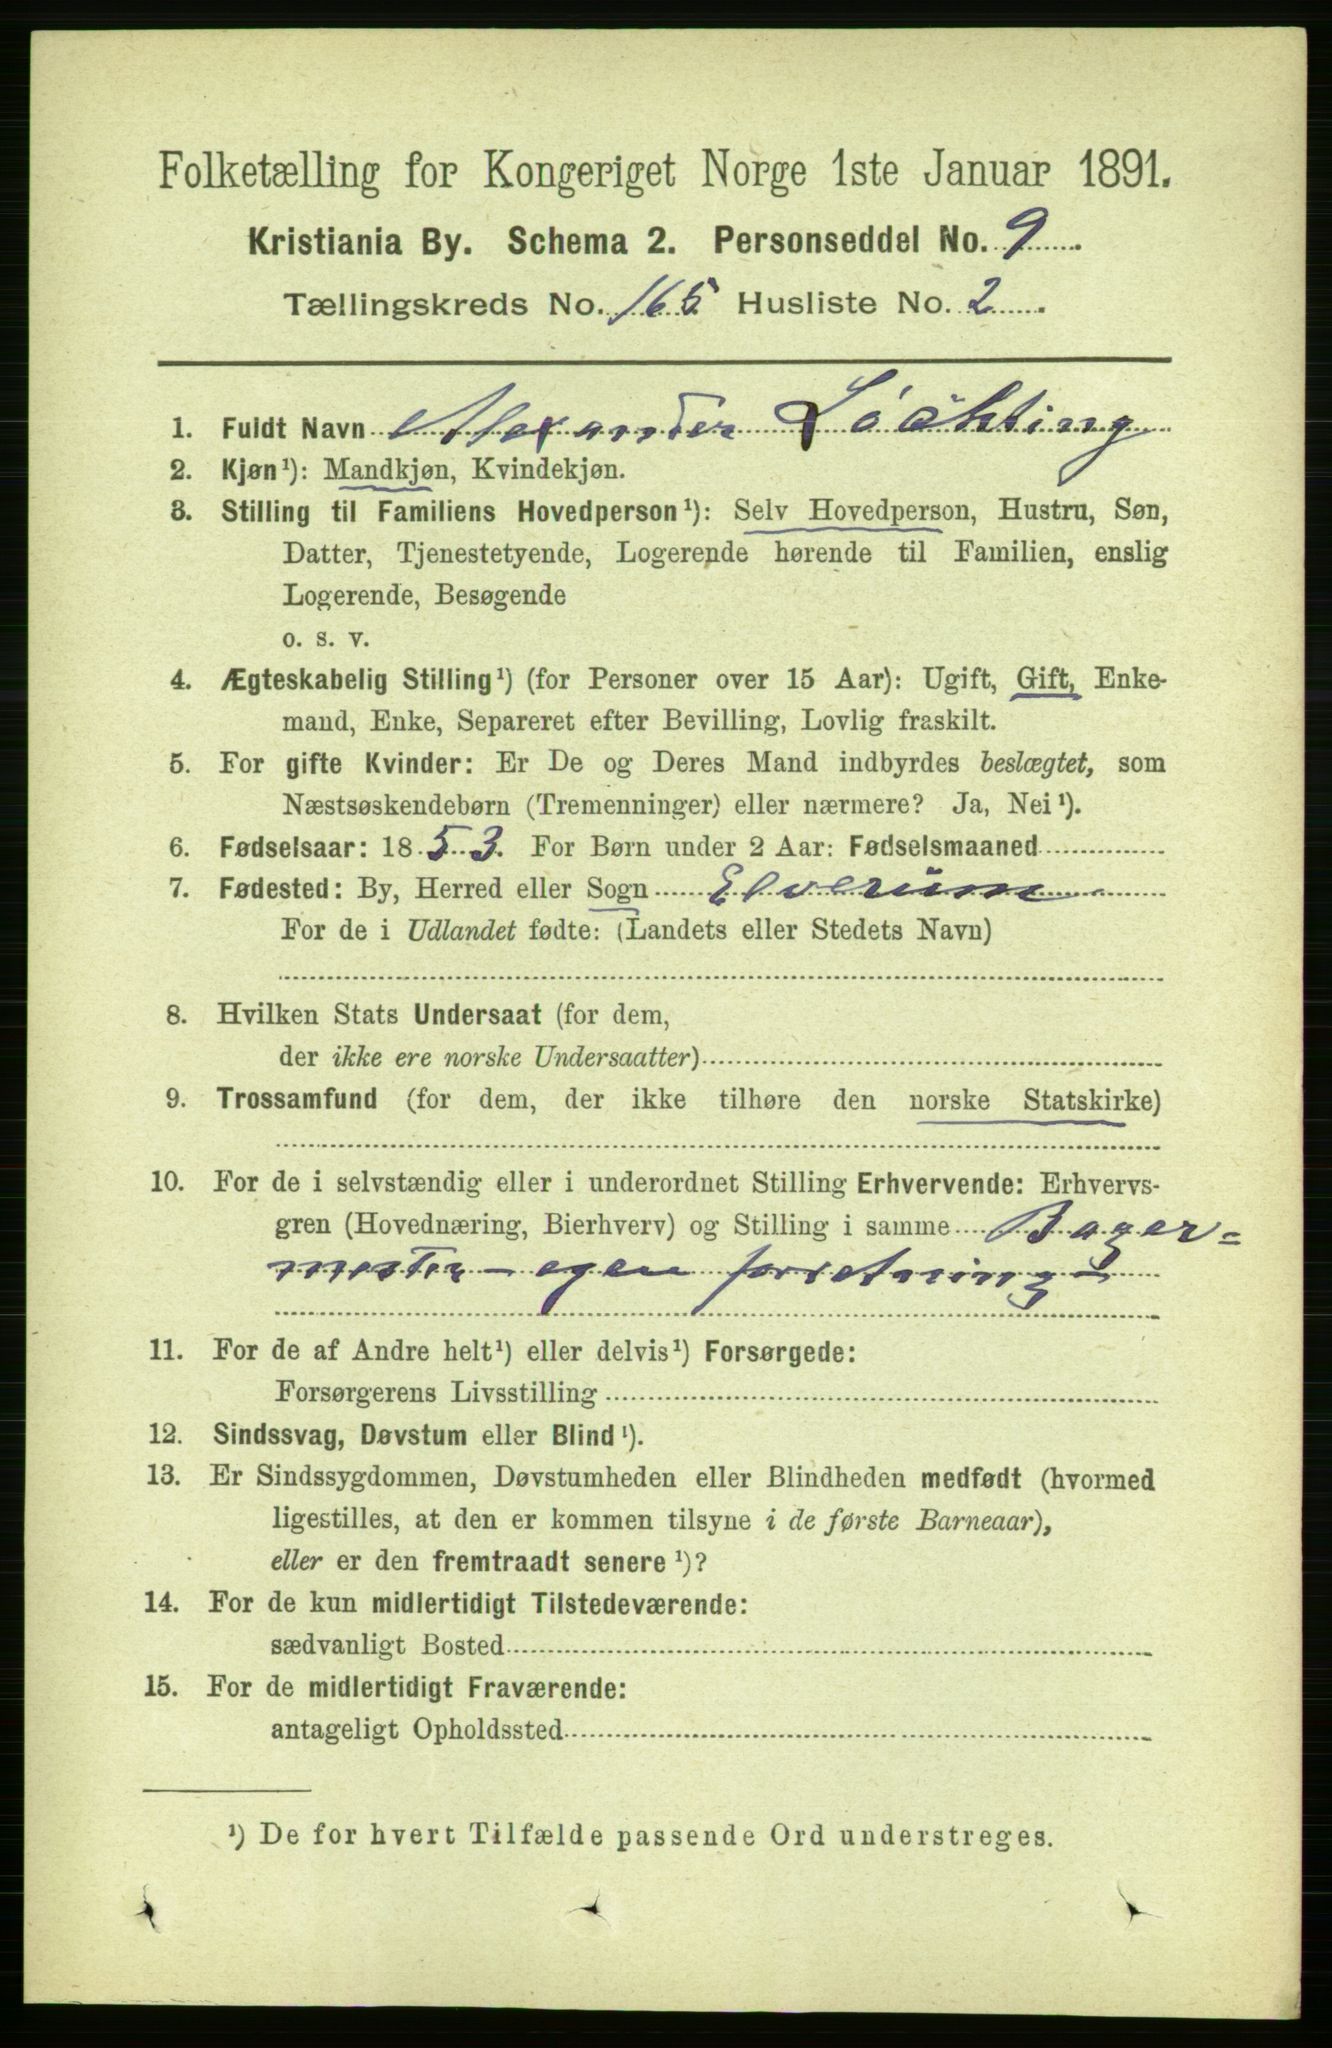 Folketælling for Kongeriget Norge 1ste Januar 1891.
Kristiania By. Schema 2. Personseddel No. 9
Tællingskreds No. 165 Husliste No. 2
1. Fuldt Navn Alexander
2. Kjøn¹): Mandkjøn, Kvindekjøn.
3. Stilling til Familiens Hovedperson¹): Selv Hovedperson, Hustru, Søn,
Datter, Tjenestetyende, Logerende hørende til Familien, enslig
Logerende, Besøgende
o. s. v.
4. Ægteskabelig Stilling¹) (for Personer over 15 Aar): Ugift, Gift, Enke-
mand, Enke, Separeret efter Bevilling, Lovlig fraskilt.
5. For gifte Kvinder: Er De og Deres Mand indbyrdes beslægtet, som
Næstsøskendebørn (Tremenninger) eller nærmere? Ja, Nei¹).
6. Fødselsaar: 1853. For Børn under 2 Aar: Fødselsmaaned
7. Fødested: By, Herred eller Sogn Elverum
For de i Udlandet fødte: (Landets eller Stedets Navn)
8. Hvilken Stats Undersaat (for dem,
der ikke ere norske Undersaatter)
9. Trossamfund (for dem, der ikke tilhøre den norske Statskirke)
10. For de i selvstændig eller i underordnet Stilling Erhvervende: Erhvervs-
gren (Hovednæring, Bierhverv) og Stilling i samme Bager=
mester – egen forretning –
11. For de af Andre helt¹) eller delvis¹) Forsørgede:
Forsørgerens Livsstilling
12. Sindssvag, Døvstum eller Blind¹).
13. Er Sindssygdommen, Døvstumheden eller Blindheden medfødt (hvormed
ligestilles, at den er kommen tilsyne i de første Barneaar),
eller er den fremtraadt senere¹)?
14. For de kun midlertidigt Tilstedeværende:
sædvanligt Bosted
15. For de midlertidigt Fraværende:
antageligt Opholdssted
¹) De for hvert Tilfælde passende Ord understreges.